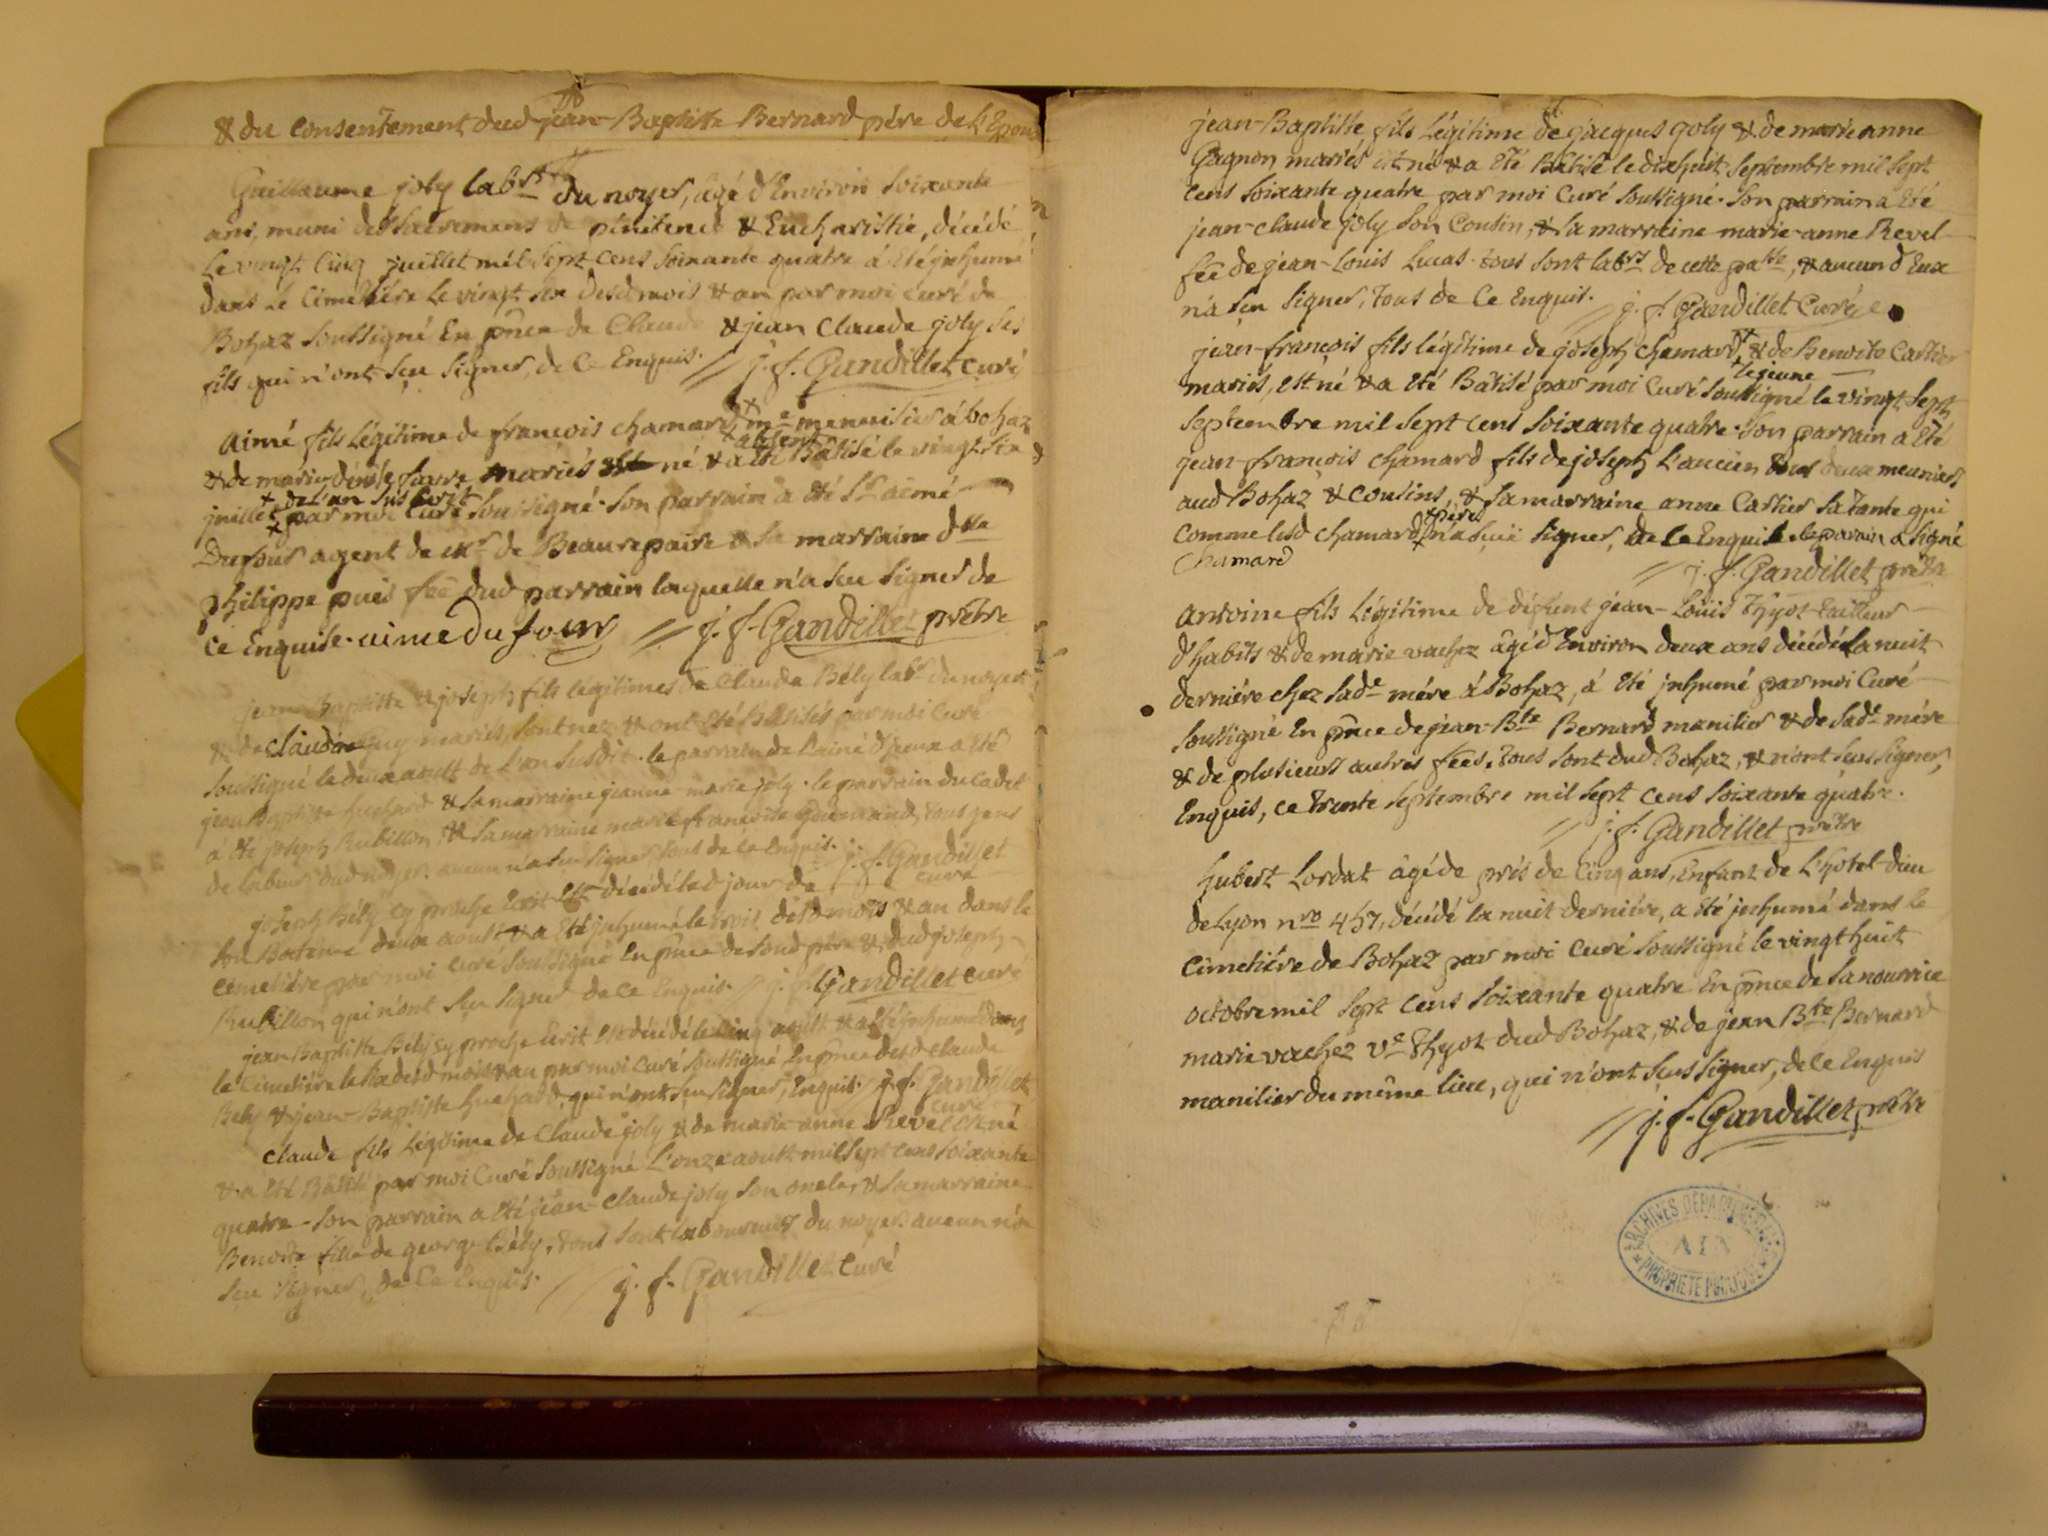 & du consentement dud jean-Baptiste Bernard père de L'Epouse
Guillaume joly labr du noyer, âgé d'Environ soixante
ans, muni des sacremens de pénitence & Eucharistie, décédé
le vingt cinq juillet mil sept cens soixante quatre á été jnhumé
dans le Cimetière le vingt six desd mois & an par moi curé de
Bohaz soussigné En pnce de Claude & jean Claude joly ses
fils qui n'ont sçu signer, de ce Enquis. // j. f. Gandillet curé
aimé fils légitime de francois chamard, me menuisier á bohaz
absent
& de marie denise favre mariés né & a été Bâtisé le vingt six
de l'an sus écrit
juillet par moi Curé soussigné. son parrain a été Sr aimé
Dufour agent de Mr de Beaurepaire & la marraine dlle
philippe puis fēē dud parrain laquelle n'a sçu signer de
ce Enquise. aime Dufour // j. f. Gandillet prêtre
jean Baptiste & joseph fils légitimes de Claude Bély labr du noyer
& de Claudine mariés, sont nez & ont été Bâtisés par moi Curé
soussigné le deux aoust de L'an susdit. le parrain de L'ainé d'iceux a été
jean Baptiste huchard & la marraine jeanne-marie joly. le parrain du cadet
a été joseph Rubillon, & sa marraine marie francoise tous gens
de labeur dud noyer. aucun n'a sçu signer, tous de ce Enquis. j. f. Gandillet
curé
joseph Bély cy proche Ecrit Est décédé led jour de
son Bateme deux aoust & a été jnhumé le trois desd mois & an dans le
cimetière par moi curé soussigné En pnce de sond père & dud joseph
Rubillon qui n'ont sçu signer de ce Enquis. // j. f. Gandillet curé
jean Baptiste Bély cy proche Ecrit Est décédé le cinq aoust & a été jnhumé dans
le cimetière le six desd mois & an par moi curé soussigné En pnce desd claude
Bely & jean-Baptiste huchard, qui n'ont sçu signer, Enquis. j. f. Gandillet
curé
Claude fils légitime de Claude joly & de marie anne Revel Est né
& a été Bâtisé par moi Curé soussigné L'onze aoust mil sept cens soixante
quatre. son parrain a été jean-claude joly son oncle, & sa marraine
Benoite fille de george Bély, tous sont laboureurs du noyer. aucun n'a
sçu signer, de ce Enquis. // j. f. Gandillet curé
jean-Baptiste, fils légitime de jacques joly & de marie anne
Gagnon mariés Est né & a été Bâtisé le dixhuit septembre mil sept
cens soixante quatre par moi Curé soussigné. son parrain a été
jean-claude joly son Cousin, & sa marraine marie-anne Revel
fēē de jean-Louis Lucas. tous sont labrs de cette psse, & aucun d'Eux
n'a sçu signer, tous de ce Enquis. // j. f. Gandillet Curé
jean-françois fils légitime de joseph chamard & de Benoite Cartier
le jeune
mariés, est né & a été Bâtisé par moi Curé soussigné le vingt sept
septembre mil sept cens soixante quatre. son parrain a été
jean-françois chamard fils de joseph L'ancien tous deux meuniers
aud Bohaz & cousins, & sa marraine anne Cartier sa tante qui
père
comme led chamard n'a sçu signer, de ce Enquis. le parain a signé
Chamard // j. f. Gandillet prêtre
antoine fils légitime de défunt jean-Louis thyot tailleur
d'habits & de marie vachez âgé d'Environ deux ans décédé la nuit
dernière chez sade mère á Bohaz, á été jnhumé par moi Curé
soussigné En pnce de jean-Bte Bernard manilier & de sade mère
& de plusieurs autres fēēs. tous sont dud Bohaz, & n'ont sçu signer,
Enquis, ce trente septembre mil sept cens soixante quatre.
// j. f. Gandillet prêtre
hubert Lordat âgé de près de Cinq ans, Enfant de L'hotel-dieu
de Lyon nro 457, décédé la nuit dernière, a été jnhumé dans le
cimetière de Bohaz par moi Curé soussigné le vingt huit
octobre mil sept cens soixante quatre En pnce de sa nourrice
marie vachez ve thyot dud Bohaz, & de jean Bte Bernard
manilier du même lieu, qui n'ont sçus signer, de ce Enquis
// j. f. Gandillet prêtre
ARCHINES DÉPARTEMENTALES
AIN
PROPRIETE PUBLIQUE